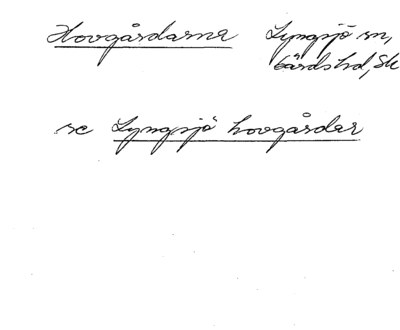 Hovgårdarna Lyngsjö sn,
Gärds hd, Sk
se Lyngsjö hovgårdar